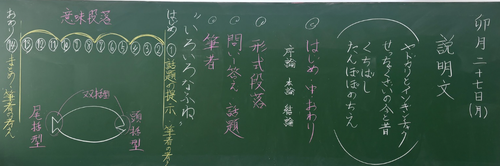 卯月二十七日(月)
説明文
ヤドカリとイソギンチャク
せつなぐいの今と昔
くちばし
たんぽぽのちえ
はじめ・中・おわり
序論 本論 結論
形式段落
問いと答え 話題
筆者
"いろいろなふね"
はじめ ① 話題の提示、筆者の考え
意味段落
② ③ ④ ⑤
おわり ⑭ まとめ・筆者の考え
頭括型
双括型
尾括型